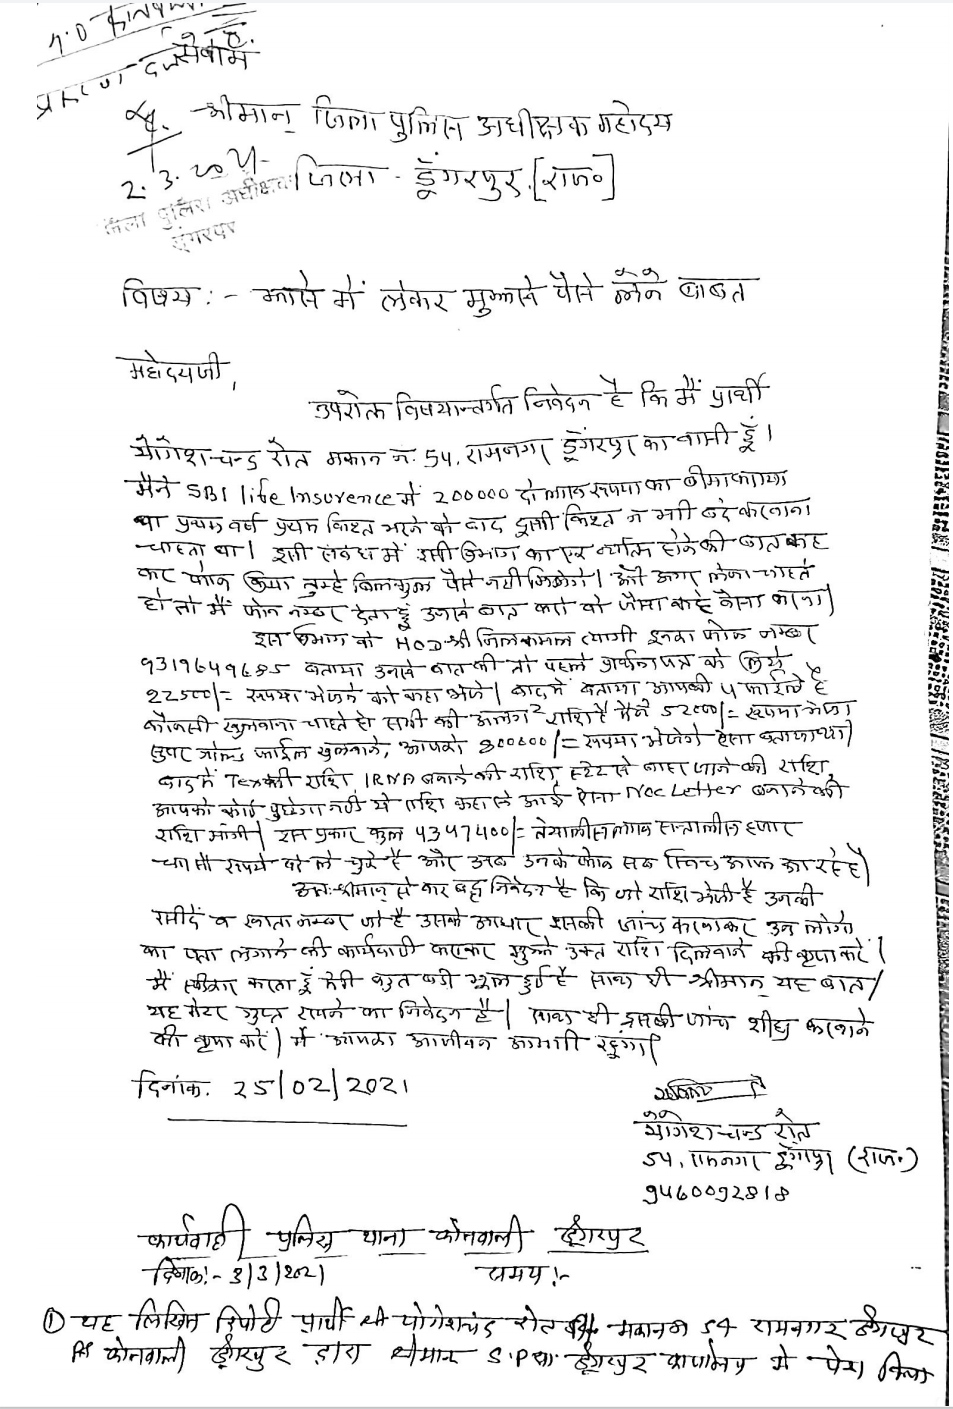 श्रीमान् जिला पुलिस अधीक्षक महोदय
2.3.2021
जिला - डूंगरपुर [राज०]
जिला पुलिस अधीक्षक
डूंगरपुर
विषय :- झासे में लेकर मुझसे पैसे लेने बाबत
महोदयजी,
उपरोक्त विषयान्तर्गत निवेदन है कि मैं प्रार्थी
योगेश चन्द्र रोत मकान नं. 54, रामनगर डूंगरपुर का वासी हूँ।
मैने SBI life Insurence में 200000 दो लाख रूपया का बीमा कराया
था प्रथम वर्ष प्रथम किश्त भरने के बाद दूसरी किश्त न भरी बंद करवाना
चाहता था। इसी संबंध में इसी विभाग का एक व्यक्ति होने की बात कह
कर फोन किया तुम्हे बिलकुल पैसे नही मिलेंगे। और अगर लेना चाहते
हो तो मैं फोन नम्बर देता हूं उनसे बात करो वो जैसा कहे वैसा करना।
इस विभाग के HOD श्री त्यागी इनका फोन नम्बर
9319649685 बताया उनसे बात की तो पहले प्रार्थना पत्र के लिए
22500/= रूपया भेजने को कहा भेजे। बाद में बताया आपकी 4 फाईले है
कौनसी खुलवाना चाहते हो सभी की अलग2 राशि है मैने 52000/= रूपया भेजा
सुपर गोल्ड फाईल खुलवाने, आपको 800600/= रूपया भेजेंगे ऐसा बताया था।
बाद में Tex की राशि, IRNA बनाने की राशि, स्टेट से बाहर जाने की राशि,
आपको कोई पुछेगा नही ये राशि कहा से आई ऐसा NOC Letter बनाने की
राशि मांगी। इस प्रकार कुल 4347400/= तेयालीस लाख सन्तालीस हजार
चार सौ रूपये वो ले चुके है और अब उनके फोन सब स्विच आफ आ रहे है।
अतः श्रीमान् से कर बद्ध निवेदन है कि जो राशि भेजी है उनकी
रसीदें व खाता नम्बर जो है उसके आधार इसकी जांच करवाकर उन लोगो
का पता लगाने की कार्यवाही करवाकर मुझे उक्त राशि दिलवाने की कृपा करें।
मैं स्वीकार करता हूँ मेरी बहुत बडी भूल हुई है साथ ही श्रीमान् यह बात
यह मेरा गुप्त रखने का निवेदन है। साथ ही इसकी जांच शीघ्र करवाने
की कृपा करें। मैं आपका आजीवन आभारी रहूंगा।
दिनांक. 25/02/2021
योगेश चन्द्र रोत
54, रामनगर डूंगरपुर (राज.)
9460092818
कार्यवाही पुलिस थाना कोतवाली डूंगरपुर
दिनांक:- 3/3/2021 समय:-
① यह लिखित रिपोर्ट प्रार्थी श्री योगेशचंद्र रोत मकान न 54 रामनगर डूंगरपुर
PS कोतवाली डूंगरपुर द्वारा श्रीमान S.P सा. डूंगरपुर कार्यालय मे पेश किया